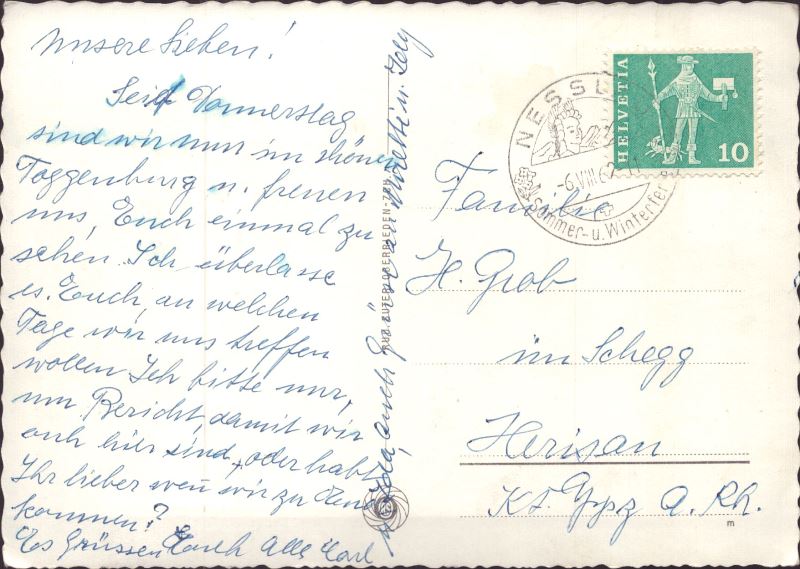 Unsere Lieben!
Seit Donnerstag
sind wir nun im schönen
Toggenburg u. freuen
uns, Euch einmal zu
sehen. Ich überlasse
es Euch, an welchen
Tage wir uns treffen
wollen. Ich bitte nur,
um Bericht, damit wir
auch hier sind, oder habt
Ihr lieber wen wir zu Euch
kommen?
Es Grüssen Euch Alle Carl
HELVETIA
10
NESSL
-6.VIII.6
Sommer- u. Winterfer
Familie
H. Grob
im Schegg
Herisau
Kt. Appz A. Rh.
m